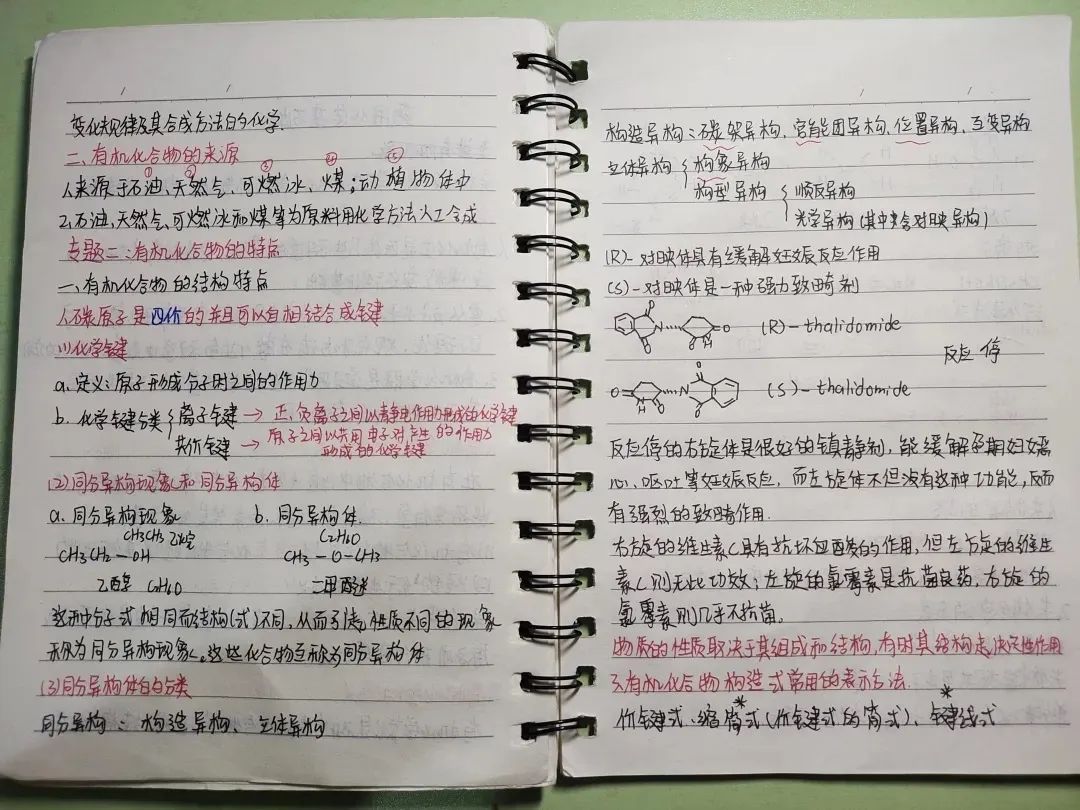 变化规律及其合成方法的化学.
二、有机化合物的来源
① ② ③ ④ ⑤
1.来源于石油、天然气、可燃冰、煤;动植物体中
2.石油、天然气、可燃冰和煤等为原料用化学方法人工合成
专题二:有机化合物的特点
一、有机化合物的结构特点
1.碳原子是四价的并且可以自相结合成键
(1)化学键
a.定义:原子形成分子时之间的作用力
b.化学键分类
离子键 → 正、负离子之间以静电作用力形成的化学键
共价键 → 原子之间以共用电子对产生的作用力
形成的化学键
(2)同分异构现象和同分异构体
a.同分异构现象 b.同分异构体.
CH3CH3 乙烷 C2H6O
CH3CH2—OH CH3—O—CH3
乙醇 C2H6O 二甲醚
这种分子式相同而结构(式)不同,从而引起性质不同的现象
称为同分异构现象。这些化合物互称为同分异构体
(3)同分异构体的分类
同分异构:构造异构、立体异构
构造异构:碳架异构、官能团异构、位置异构、互变异构
立体异构
构象异构
构型异构
顺反异构
光学异构(其中包含对映异构)
(R)-对映体具有缓解妊娠反应作用
(S)-对映体是一种强力致畸剂
O N O O N H O (R)-thalidomide
反应停
O N H O N O O (S)-thalidomide
反应停的右旋体是很好的镇静剂,能缓解孕期妇女恶
心、呕吐等妊娠反应,而左旋体不但没有这种功能,反而
有强烈的致畸作用.
右旋的维生素C具有抗坏血酸的作用,但左旋的维生
素C则无此功效;左旋的氯霉素是抗菌良药,右旋的
氯霉素则几乎不抗菌.
物质的性质取决于其组成和结构,有时其结构起决定性作用
3.有机化合物构造式常用的表示方法.
* *
价键式、缩简式(价键式的简式)、键线式